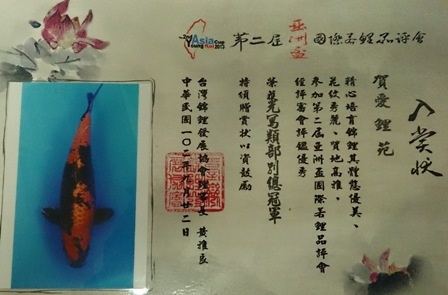 Asia Cup
Young Koi 2013
第二屆亞洲盃國際若鯉品評會
入賞狀
賀愛鯉苑
精心培育錦鯉其體態優美、
花紋秀麗、質地高雅、
參加第二屆亞洲盃國際若鯉品評會
經評審會評鑑優秀
榮獲光寫類部別冠軍
特頒贈賞狀以資鼓勵
台灣錦鯉發展協會理事長 黃
中華民國一〇二年九月廿二日